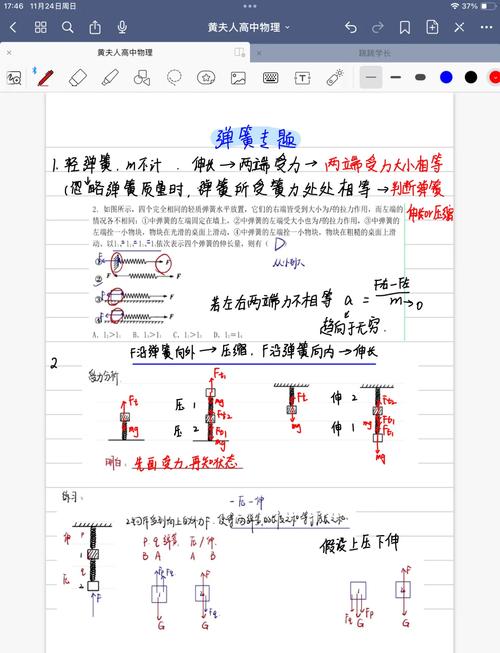 17:46 11月24日周日
37%
黄夫人高中物理
黄夫人高中物理
跳跳学长
弹簧专题
1. 轻弹簧. m不计. 伸长→两端受力→两端受力大小相等
(忽略弹簧质量时, 弹簧所受簧力处处相等→判断弹簧
伸长or压缩
2. 如图所示,四个完全相同的轻质弹簧水平放置,它们的右端皆受到大小为F的拉力作用,而左端的
情况各不相同:①中弹簧的左端固定在墙上,②中弹簧的左端受大小也为F的拉力作用,③中弹簧的
左端拴一小物块,物块在光滑的桌面上滑动,④中弹簧的左端拴一小物块,物块在粗糙的桌面上滑
动。以l₁、l₂、l₃、l₄依次表示四个弹簧的伸长量,则有( D
① F
② F F
③ F
④ F
若左右两端力不相等 a = F右-F左 / m→0
趋向于无穷.
A. l₂>l₁ B. l₄>l₃ C. l₁>l₃ D. l₂=l₄
F沿弹簧向外→压缩. F沿弹簧向内→伸长
2
受力分析.
F弹 mg
压 1
压 2
mg
mg
mg
伸 2
伸 1
mg
mg
明白: 先画受力, 再知状态
练习:
伸 P
1
压 q
2
F
一压一伸
P q 弹簧. 压/伸.
B A A B
假设上压下伸
1 G
2 F G
1 G
2 F G